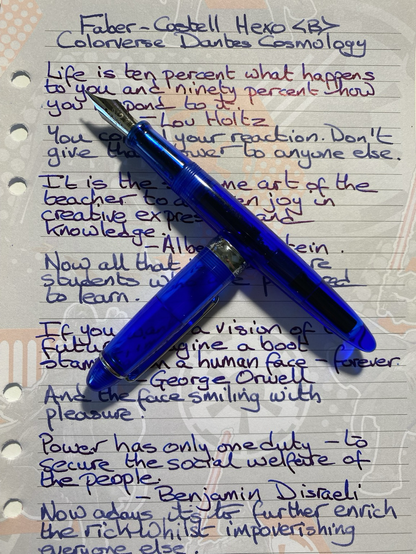 Faber-Castell Hexo <B>
Colorverse Dantes Cosmology
Life is ten percent what happens
to you and ninety percent how
you respond to it.
-Lou Holtz
You your reaction. Don't
give power to anyone else.
It is the art of the
teacher to joy in
creative and
knowledge.
-Albe
Now all that
students
to learn.
If you a vision of
imagine a boot
a human face - forever.
-George Orwell
And the face smiling with
pleasure.
Power has only one duty - to
secure the social welfare of
the people.
- Benjamin Disraeli
Now adays its to further enrich
the rich whilst impoverishing
everyone else.